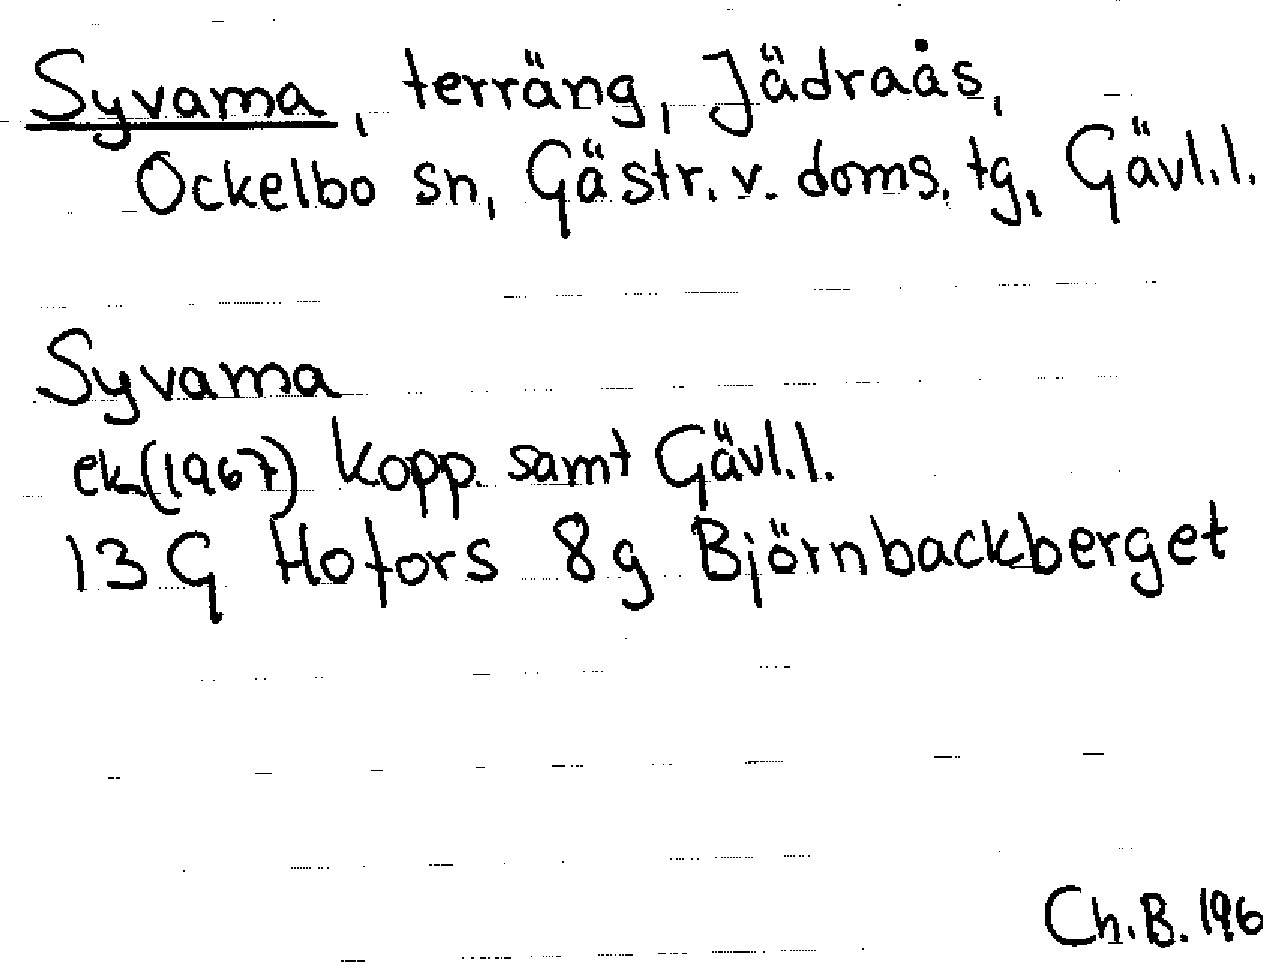 Syvarna, terräng, Jädraås,
Ockelbo sn, Gästr. v. doms. tg, Gävl.l.
Syvarna
ek (1967) Kopp. samt Gävl.l.
13 G Hofors 8g Björnbackberget
Ch.B. 196